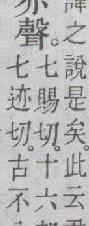 諱之說是矣。此云君
亦聲。
七賜切。十六
七迹切。古不